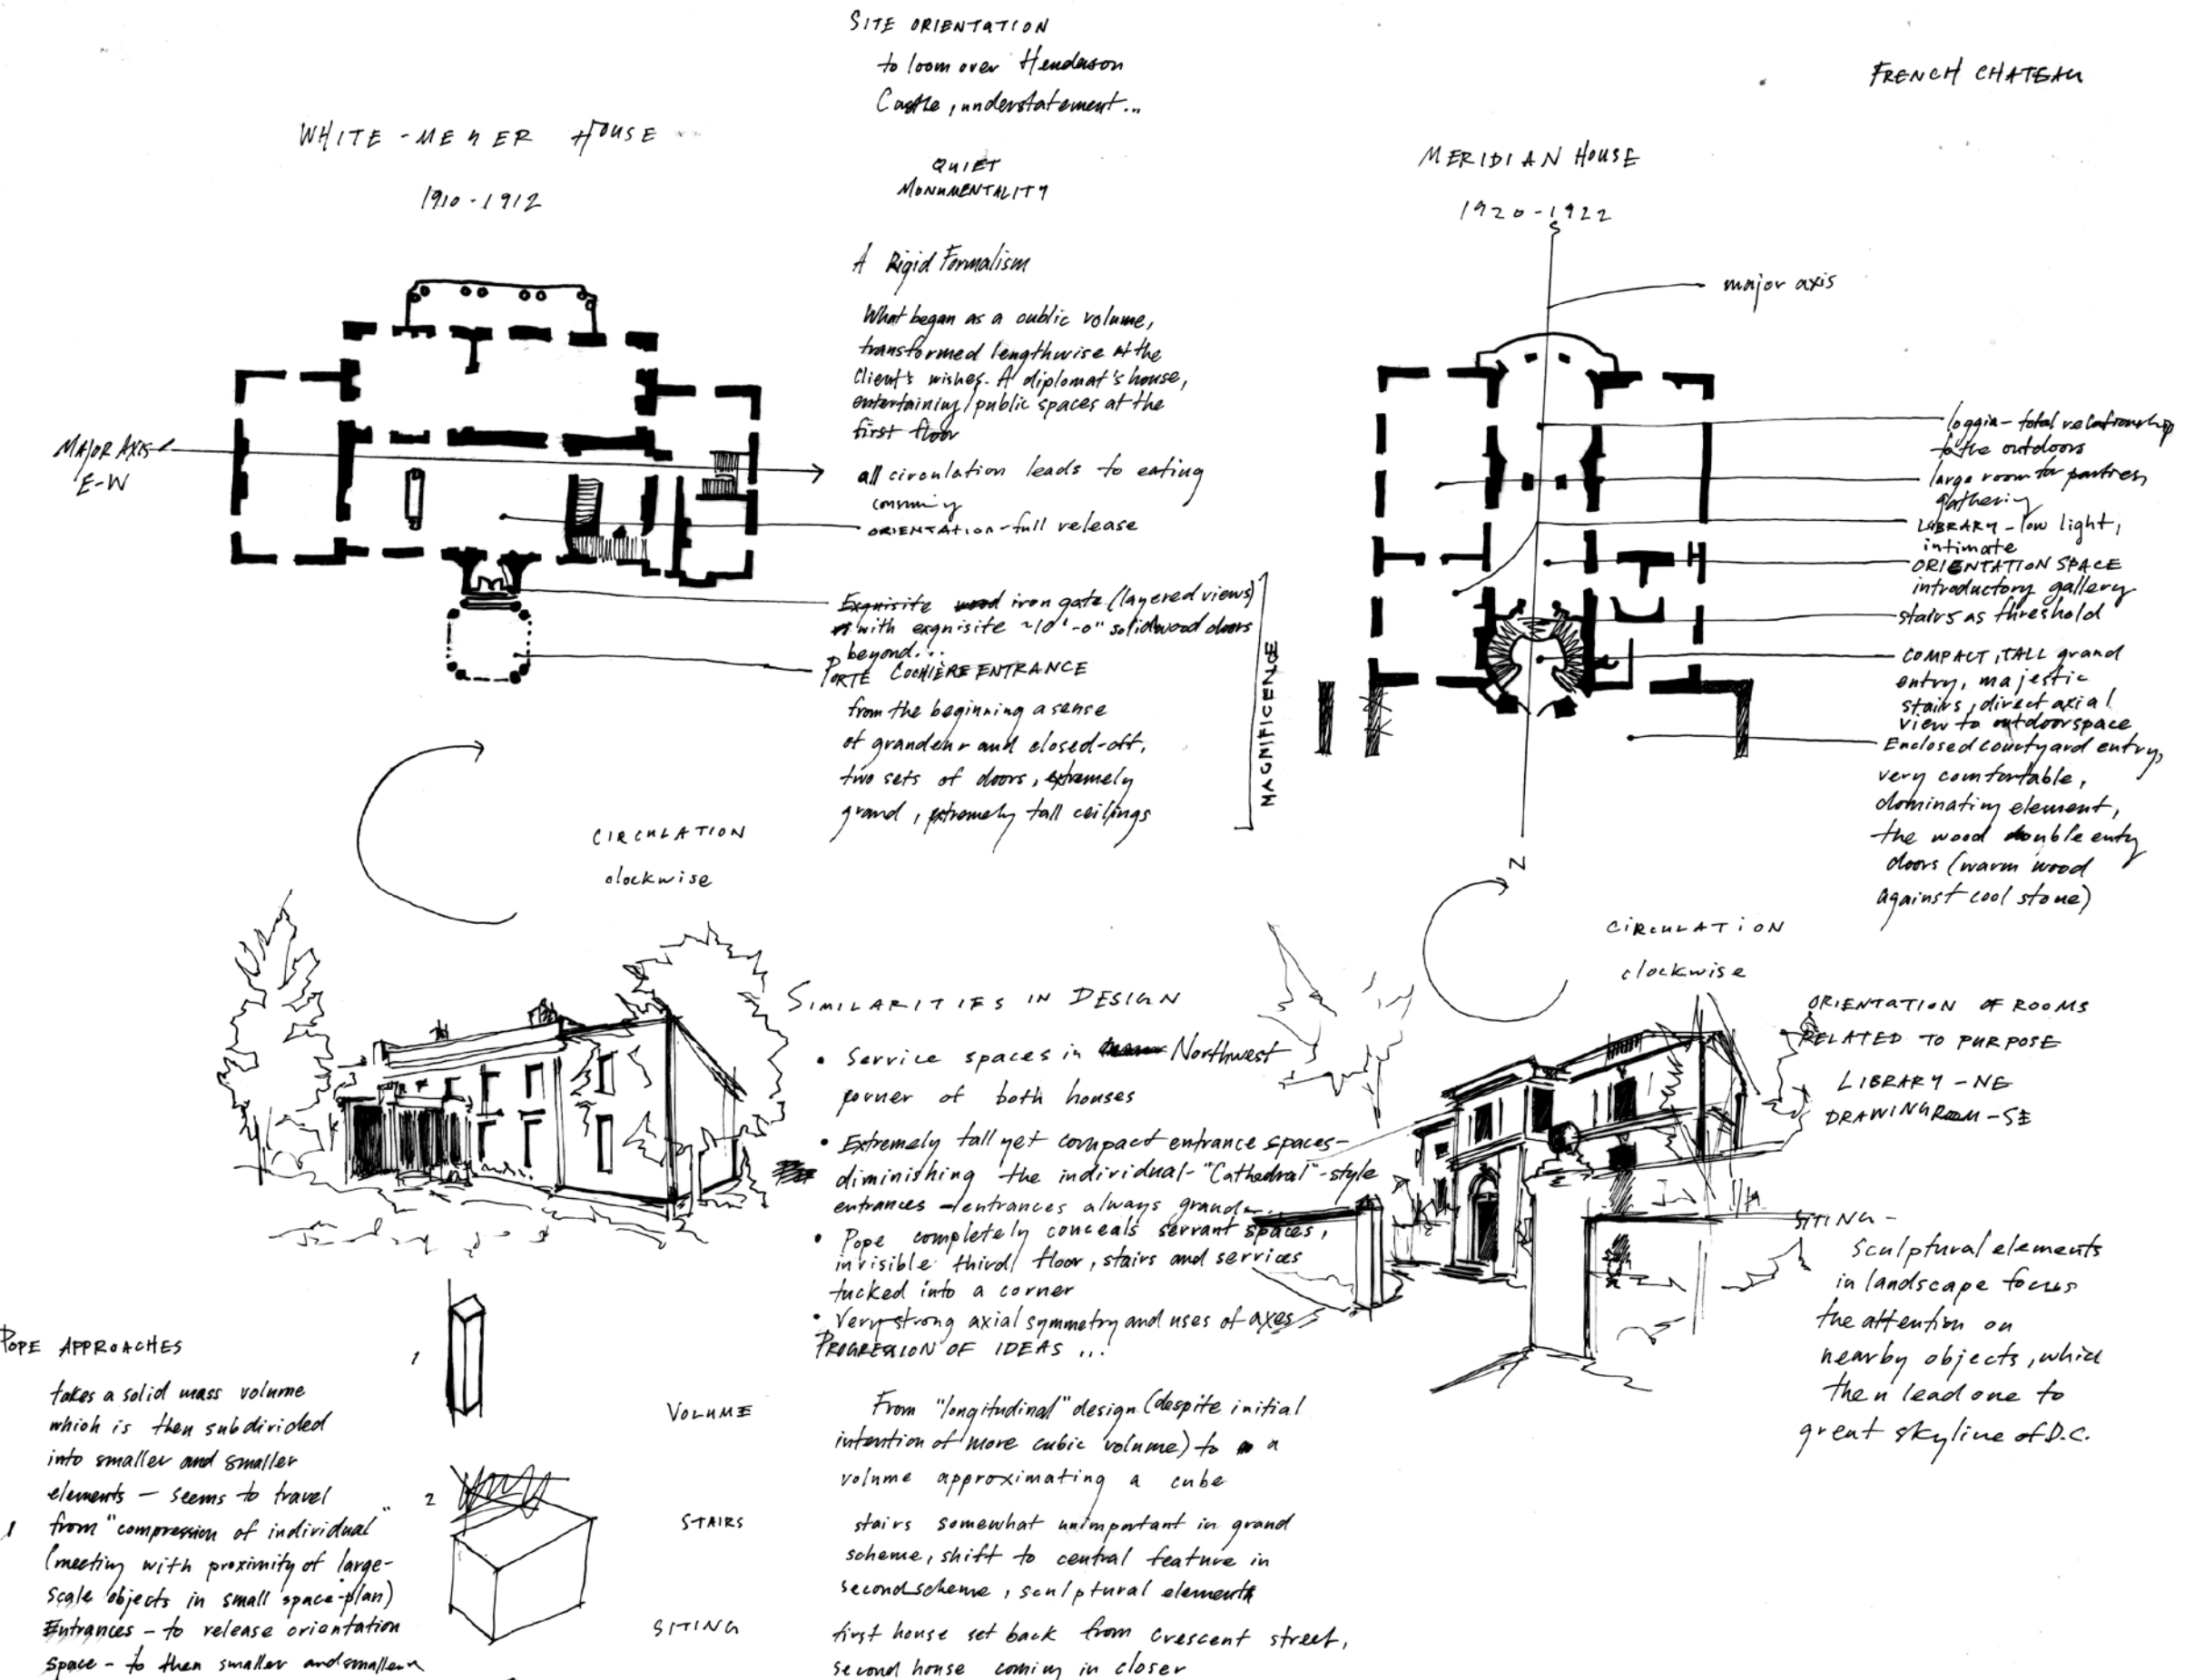 SITE ORIENTATION
to loom over Henderson
Castle, understatement...
QUIET
MONUMENTALITY
FRENCH CHATEAU
WHITE-MEYER HOUSE
1910-1912
A Rigid Formalism
What began as a cubic volume,
transformed lengthwise at the
client's wishes. A diplomat's house,
entertaining/public spaces at the
first floor
MAJOR AXIS
E-W
all circulation leads to eating
consuming
ORIENTATION-full release
Exquisite iron gate (layered views)
with exquisite ~10'-0" solidwood doors
beyond...
PORTE COCHIÈRE ENTRANCE
from the beginning a sense
of grandeur and closed-off,
two sets of doors, extremely
grand, extremely tall ceilings
MAGNIFICENCE
CIRCULATION
clockwise
MERIDIAN HOUSE
1920-1922
S
major axis
loggia-total relationship
to the outdoors
large room for parties
gathering
LIBRARY-low light,
intimate
ORIENTATION SPACE
introductory gallery
stairs as threshold
COMPACT, TALL grand
entry, majestic
stairs, direct axial
view to outdoorspace
Enclosed courtyard entry,
very comfortable,
dominating element,
the wood double enty
doors (warm wood
against cool stone)
N
CIRCULATION
clockwise
SIMILARITIES IN DESIGN
• Service spaces in Northwest
corner of both houses
• Extremely tall yet compact entrance spaces-
diminishing the individual-"Cathedral"-style
entrances - entrances always grand
• Pope completely conceals servant spaces,
invisible third floor, stairs and services
tucked into a corner
• Very strong axial symmetry and uses of axes
ORIENTATION OF ROOMS
RELATED TO PURPOSE
LIBRARY-NE
DRAWINGROOM-SE
SITING-
Sculptural elements
in landscape focus
the attention on
nearby objects, which
then lead one to
great skyline of D.C.
POPE APPROACHES
takes a solid mass volume
which is then subdivided
into smaller and smaller
elements — seems to travel
from "compression of individual"
(meeting with proximity of large-
scale objects in small space-plan)
Entrances - to release orientation
space - to then smaller and smaller
1
2
PROGRESSION OF IDEAS...
VOLUME
From "longitudinal" design (despite initial
intention of more cubic volume) to a
volume approximating a cube
STAIRS
stairs somewhat unimportant in grand
scheme, shift to central feature in
second scheme, sculptural elements
SITING
first house set back from crescent street,
second house coming in closer